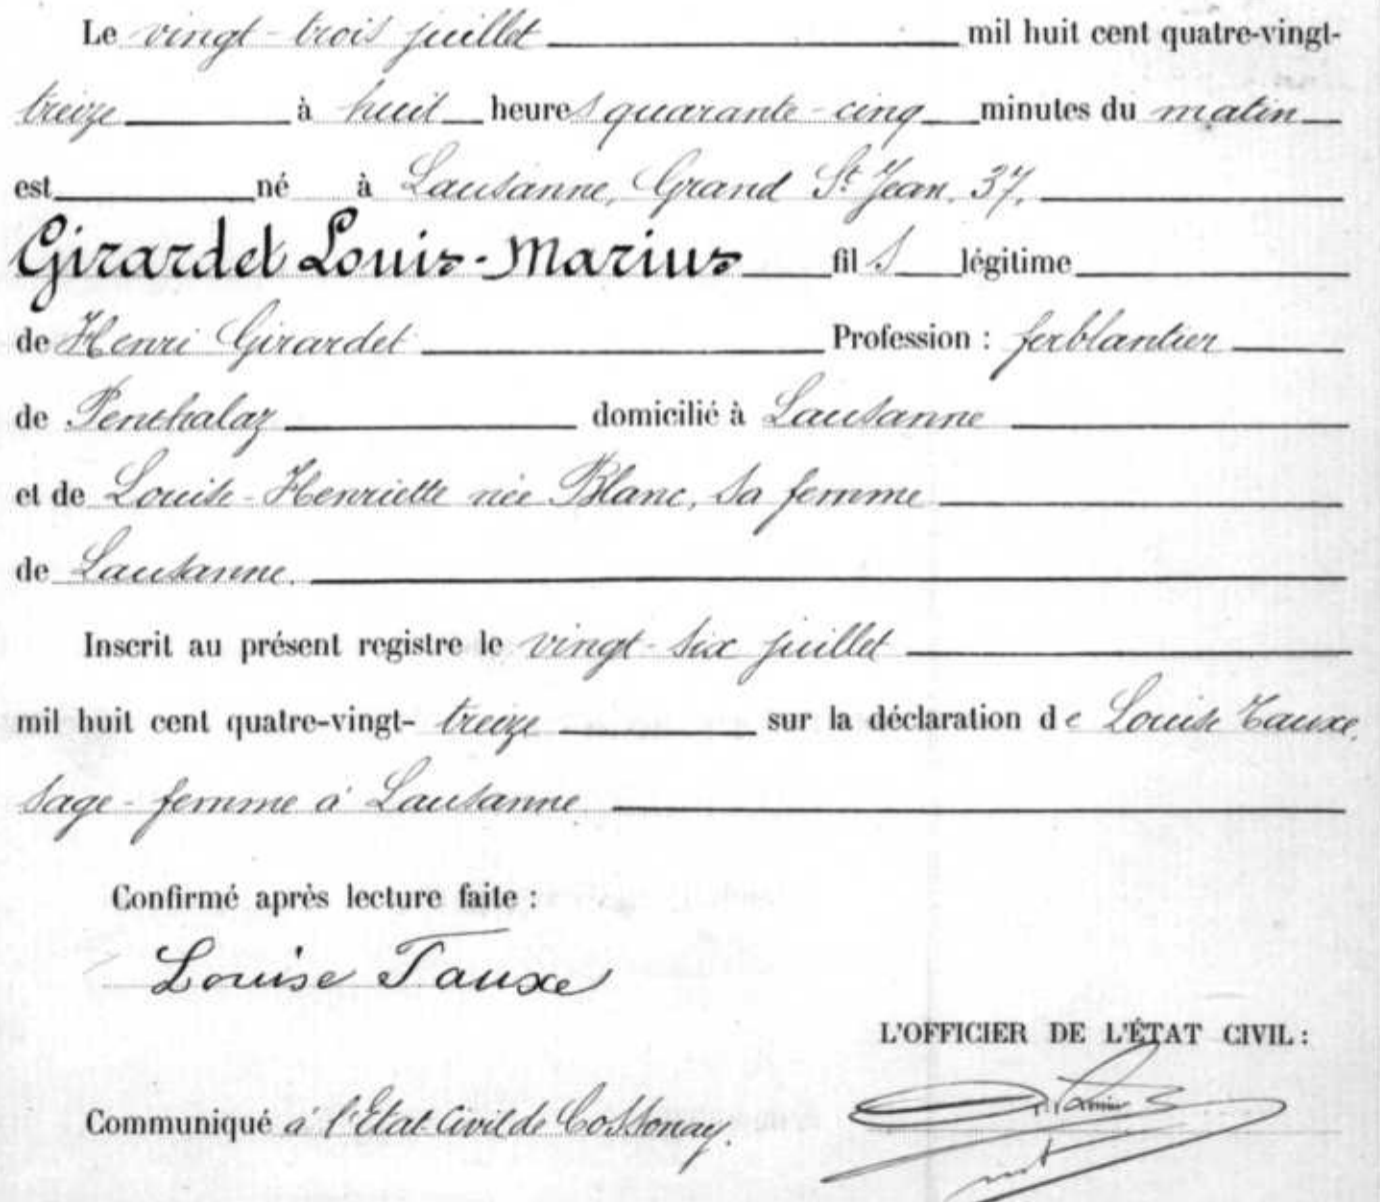 Le vingt-trois juillet mil huit cent quatre-vingt-
treize à huit heures quarante-cinq minutes du matin
est né à Lausanne, Grand St Jean, 37,
Girardet Louis-Marius fils légitime
de Henri Girardet Profession : ferblantier
de Penthalaz domicilié à Lausanne
et de Louise-Henriette née Blanc, sa femme
de Lausanne.
Inscrit au présent registre le vingt-six juillet
mil huit cent quatre-vingt- treize sur la déclaration de Louise Tauxe,
sage-femme à Lausanne
Confirmé après lecture faite :
Louise Tauxe
L'OFFICIER DE L'ÉTAT CIVIL :
Communiqué à l'Etat Civil de Cossonay.